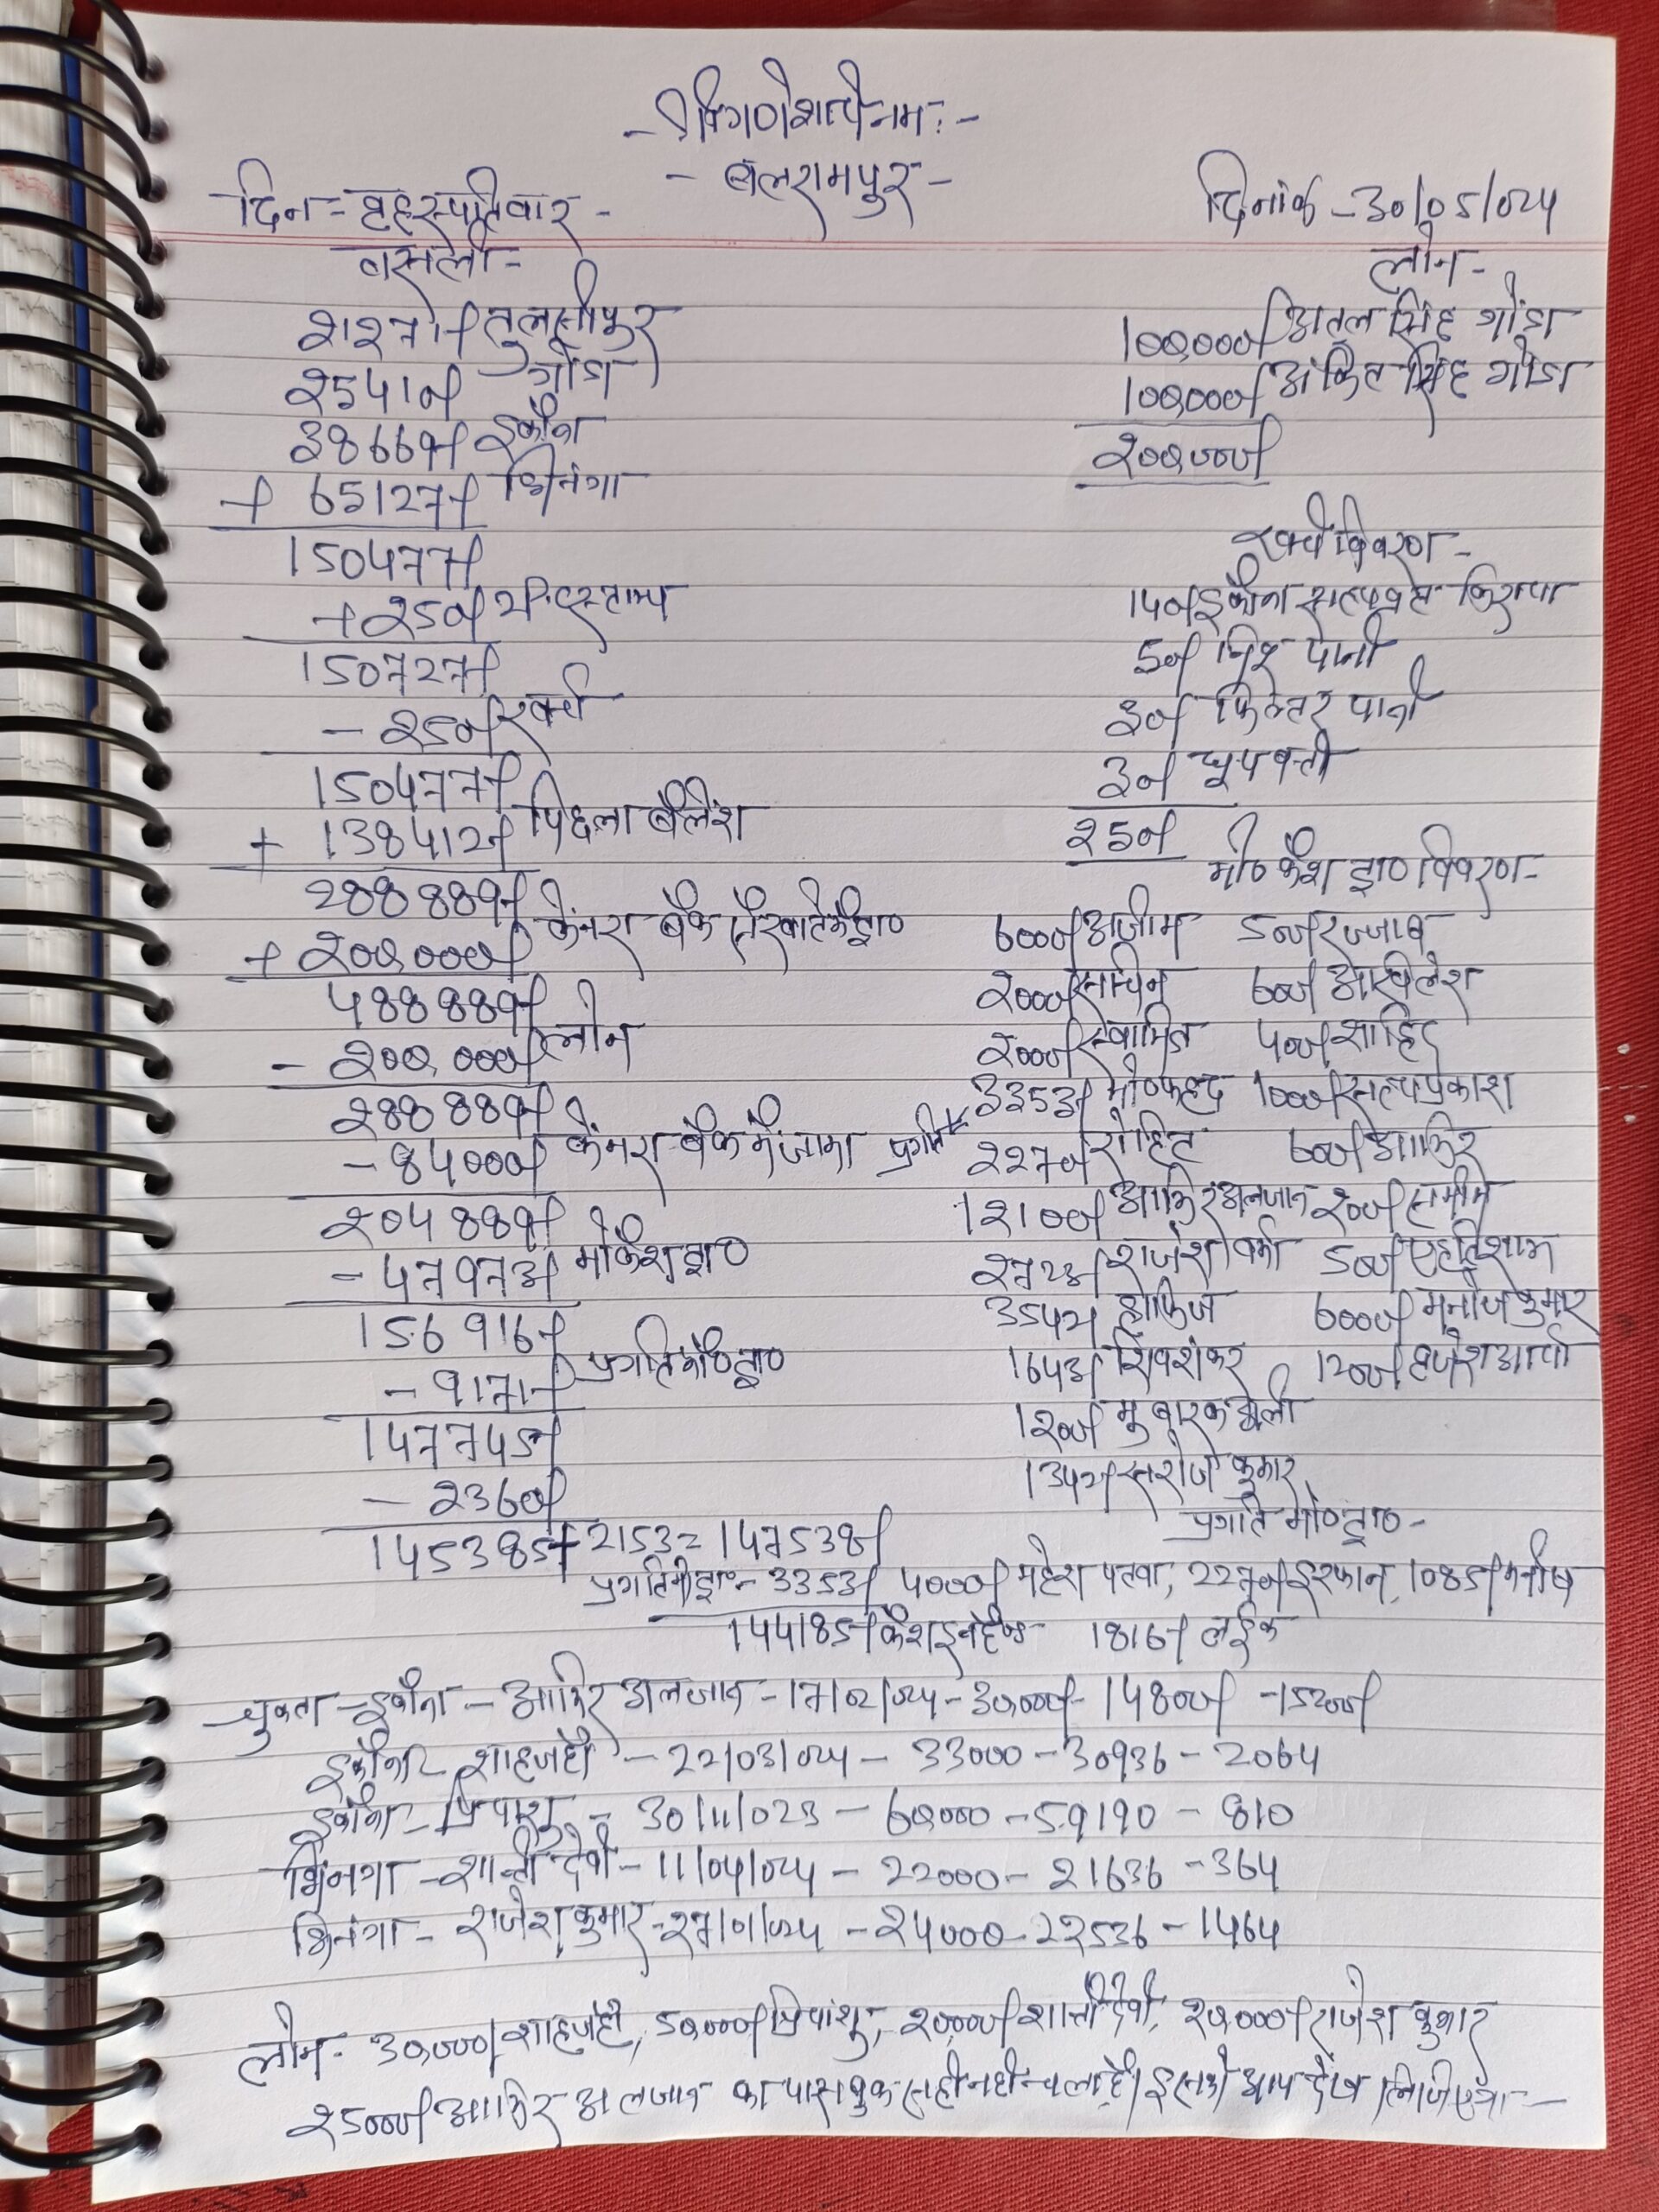 -श्री गणेशाय नमः-
- बलरामपुर -
दिन - बृहस्पतिवार -
दिनांक - 30/05/024
वसूली -
21271/- तुलसीपुर
25410/- गोंडा
38669/- इकौना
+ 65127/- भिनगा
150477/-
+ 250/-
150727/-
- 250/- खर्चा
150477/-
+ 138412/- पिछला बैलेंश
288889/-
+ 200,000/- केनरा बैंक
488889/-
- 200,000/- लोन
288889/-
- 84000/- केनरा बैंक में जामा
204889/-
- 47973/-
156916/-
- 9171/-
147745/-
- 2360/-
145385/- + 2153 = 147538/-
- 3353/-
144185/- कैश इन हैण्ड
लोन -
100,000/- अतुल सिंह गोंडा
100,000/- अंकित सिंह गोंडा
200,000/-
खर्चा विवरण -
140/- इकौना सत्यव्रत किराया
50/- पानी
30/- फिल्टर पानी
30/- धूपबत्ती
250/-
मो० कैश ट्रा० विवरण -
6000/- अजीम 500/- रज्जाब
2000/- सचिन 600/- अखिलेश
2000/- 400/- शाहिद
3353/- मो० फहद 1000/- सत्यप्रकाश
प्रगति 2270/- रोहित 600/- आमिर
12100/- आमिर अलजान 200/- समीम
2723/- राजेश वर्मा 500/- एहतिशाम
3542/- हाफिज 6000/- मनोज कुमार
1643/- शिवशंकर 1200/- ब्रजेश आर्या
1200/- मुबारक अली
1342/- सरोज कुमार
प्रगति मो० ट्रा० -
4000/- महेश पटवा, 2270/- इरफान, 1085/- मनीष
1816/- लईक
चुकता - इकौना - आमिर अलजान - 17/02/024 - 30,000/- 14800/- - 15200/-
इकौना - शाहजहाँ - 22/03/024 - 33000 - 30936 - 2064
इकौना - प्रियांशु - 30/11/023 - 60,000 - 59190 - 810
भिनगा - शान्ती देवी - 11/04/024 - 22000 - 21636 - 364
भिनगा - राजेश कुमार - 27/01/024 - 24000 - 22536 - 1464
लोन - 30,000/- शाहजहाँ, 50,000/- प्रियांशु, 20,000/- शान्ती देवी, 20,000/- राजेश कुमार
25000/- आमिर अलजान का पासबुक सही नही चला है। इसको आप देख लिजिएगा -